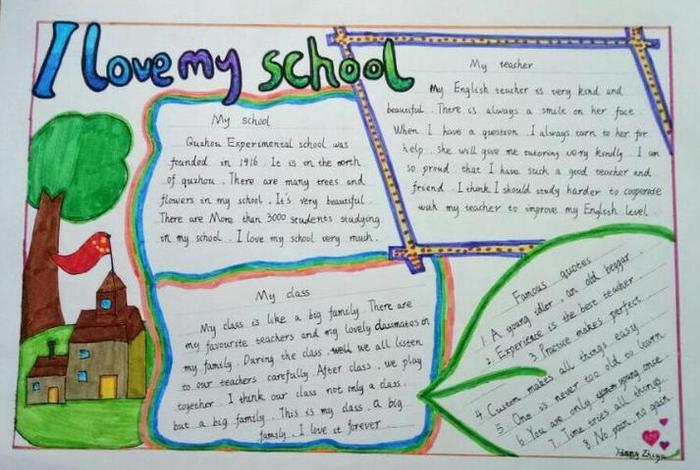 I love my school
My school
Quzhou Experimental school was
founded in 1916. It is on the north
of quzhou. There are many trees and
flowers in my school. It's very beautiful.
There are More than 3000 students studying
in my school. I love my school very much.
My teacher
My English teacher is very kind and
beautiful. There is always a smile on her face.
When I have a question, I always turn to her for
help. she will give me tutoring very kindly. I am
so proud that I have such a good teacher and
friend. I think I should study harder to cooperate
with my teacher to improve my English level.
My class
My class is like a big family. There are
my favourite teachers and my lovely classmates in
my family. During the class we all listen
to our teachers carefully. After class, we play
together. I think our class not only a class
but a big family. This is my class. A big
family. I love it forever.
Famous quotes
1. A young idler, an old beggar.
2. Experience is the best teacher
3. Practice makes perfect
4. Custom makes all things easy
5. One is never too old to learn
6. You are only young once.
7. Time tries all things.
8. No pain, no gain.